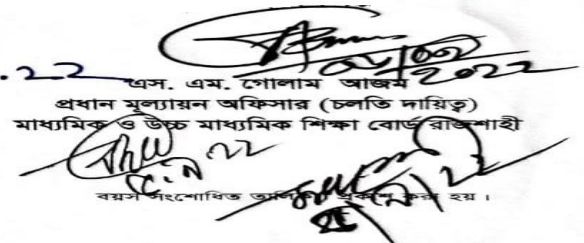 .২২
২০২২
এস. এম. গোলাম আজম
প্রধান মূল্যায়ন অফিসার (চলতি দায়িত্ব)
মাধ্যমিক ও উচ্চ মাধ্যমিক শিক্ষা বোর্ড রাজশাহী
২২
বয়স সংশোধিত তালিকা প্রকাশ করা হয়।